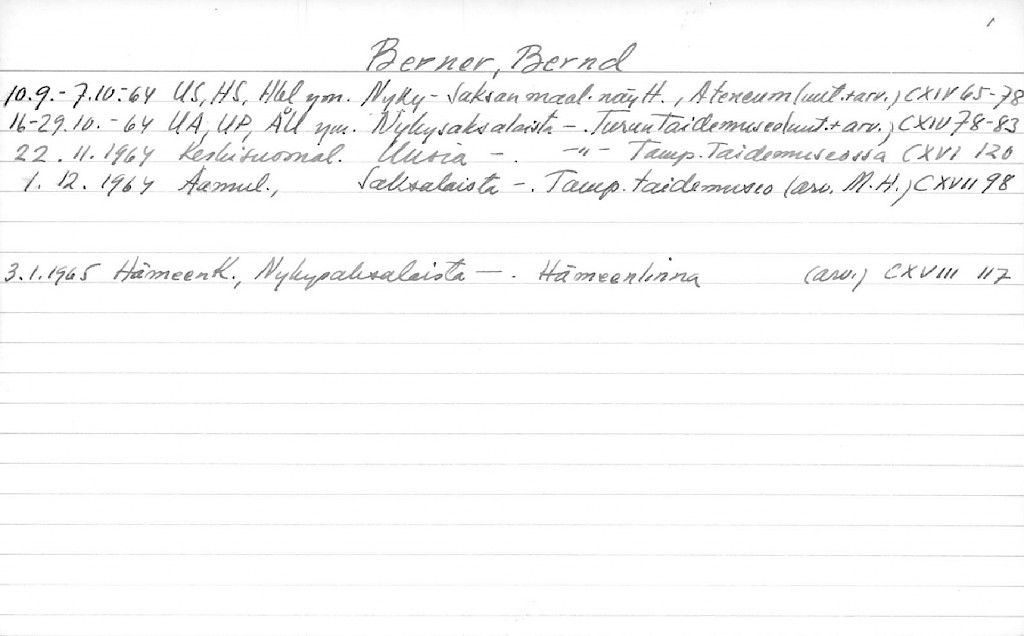 1
Berner, Bernd
10.9.-7.10.-64 US, HS, Hbl ym. Nyky-Saksan maal.näytt., Ateneum (uut.+arv.) CXIV 65-78
16-29.10.-64 UA, UP, ÅU ym. Nykysaksalaista -. Turun Taidemuseo (uut.+arv.) CXIV 78-83
22.11.1964 Keskisuomal. Uusia -. -"- Tamp. Taidemuseossa CXVI 120
1.12.1964 Aamul., Saksalaista -. Tamp. taidemuseo (arv. M.H.) CXVII 98
3.1.1965 HämeenK., Nykysaksalaista -. Hämeenlinna (arv.) CXVIII 117